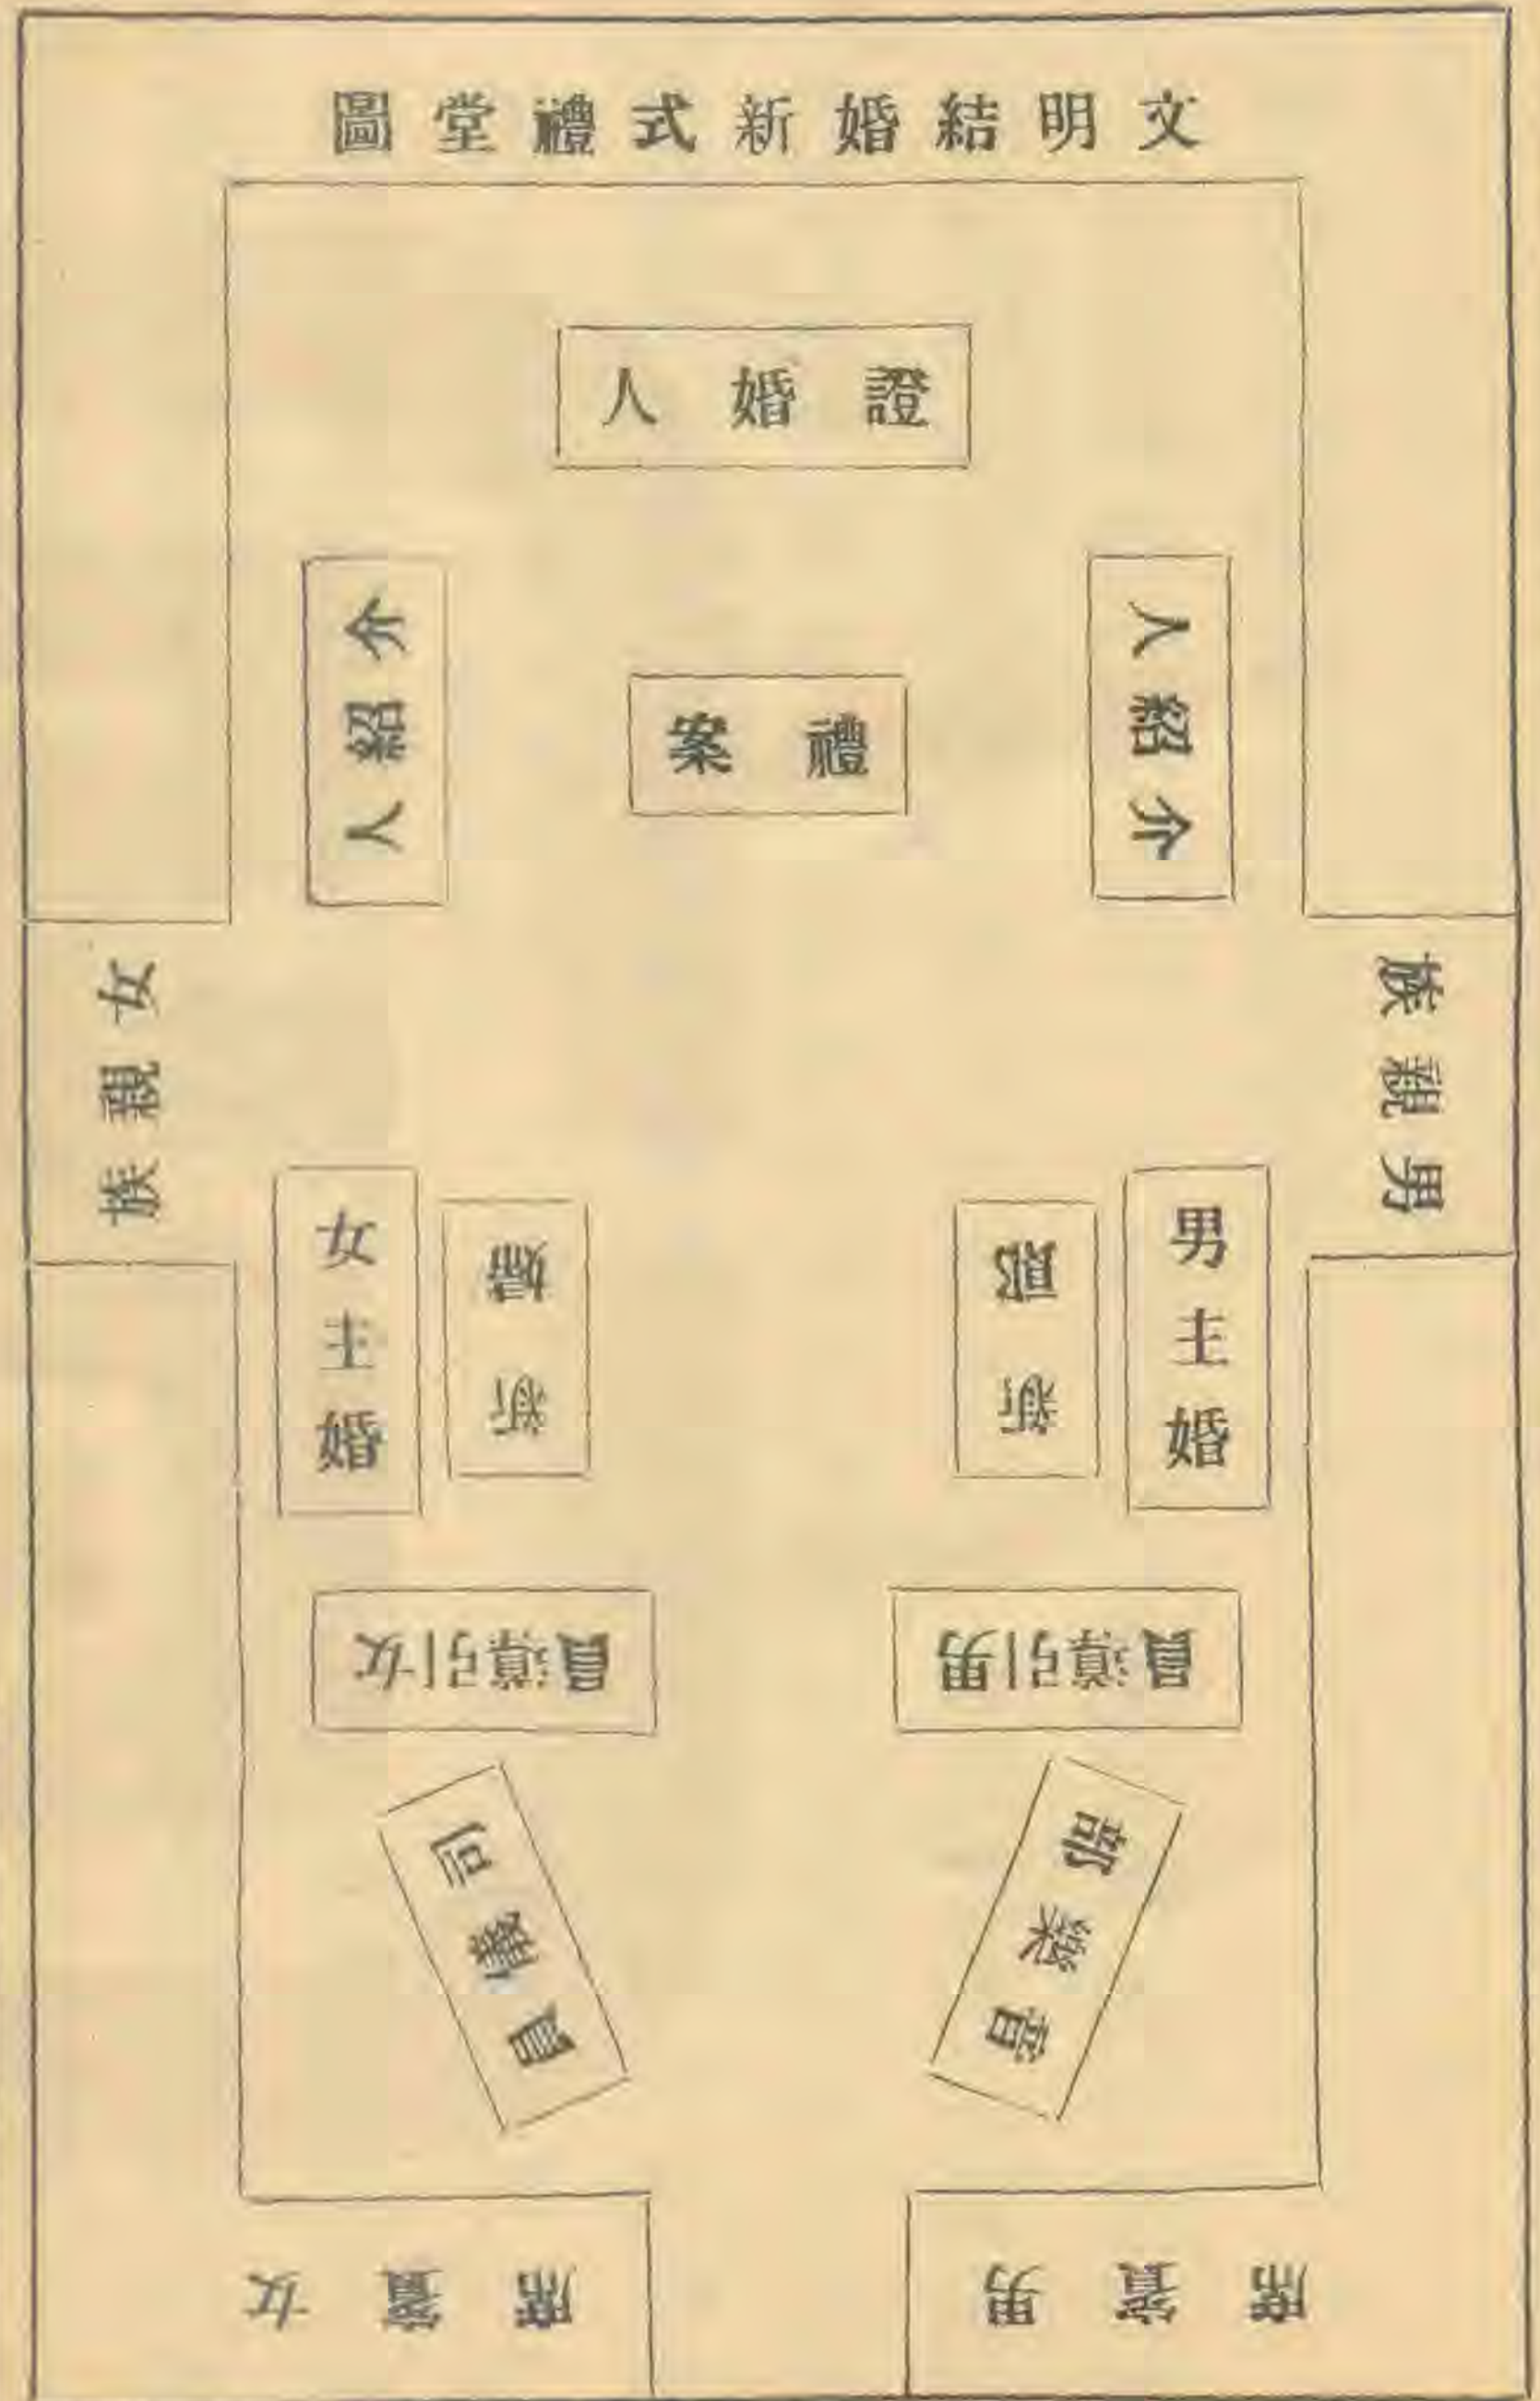 文明結婚新式禮堂圖
證婚人
介紹人
介紹人
禮案
男親族
女親族
男主婚
新郎
新婦
女主婚
男引導員
女引導員
音樂部
司儀員
男賓席
女賓席